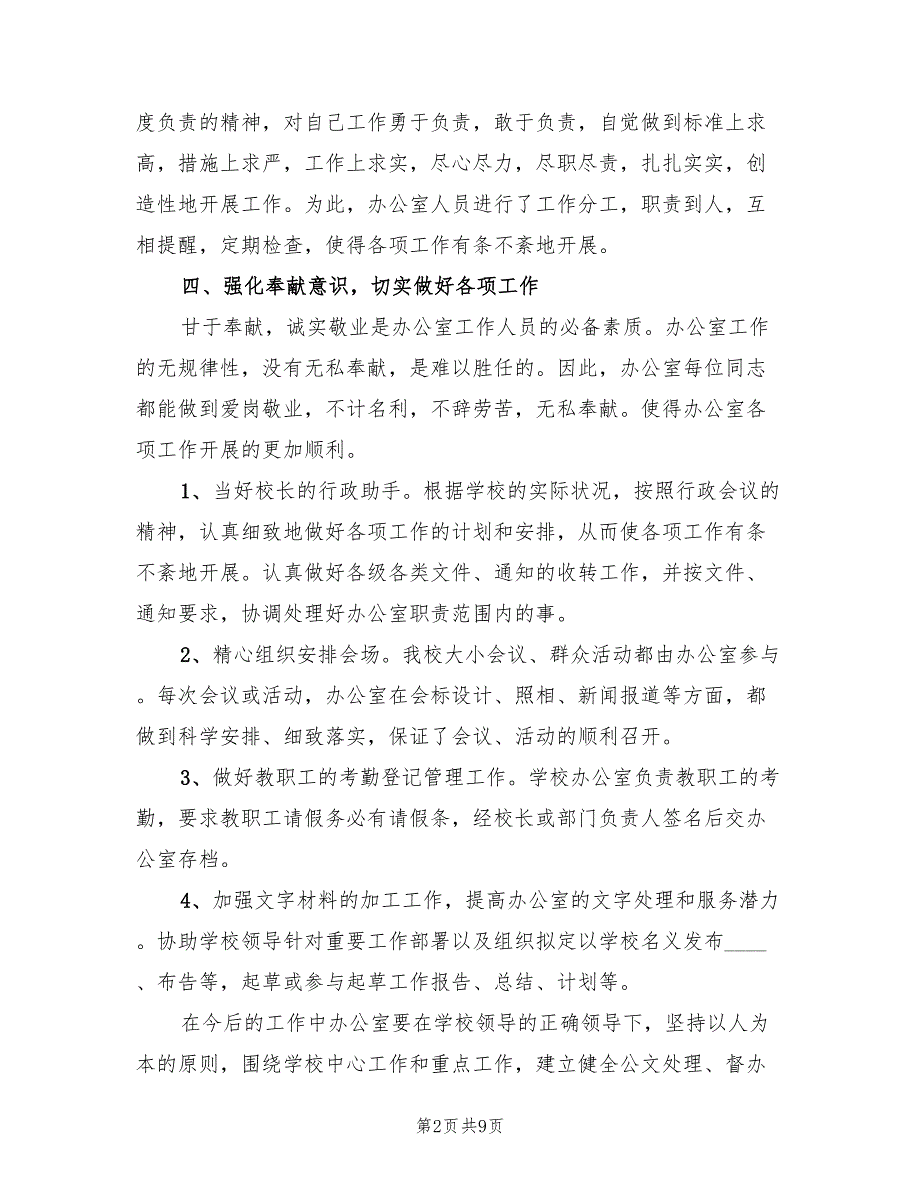 度负责的精神，对自己工作勇于负责，敢于负责，自觉做到标准上求
高，措施上求严，工作上求实，尽心尽力，尽职尽责，扎扎实实，创
造性地开展工作。为此，办公室人员进行了工作分工，职责到人，互
相提醒，定期检查，使得各项工作有条不紊地开展。
四、强化奉献意识，切实做好各项工作
甘于奉献，诚实敬业是办公室工作人员的必备素质。办公室工作
的无规律性，没有无私奉献，是难以胜任的。因此，办公室每位同志
都能做到爱岗敬业，不计名利，不辞劳苦，无私奉献。使得办公室各
项工作开展的更加顺利。
1、当好校长的行政助手。根据学校的实际状况，按照行政会议的
精神，认真细致地做好各项工作的计划和安排，从而使各项工作有条
不紊地开展。认真做好各级各类文件、通知的收转工作，并按文件、
通知要求，协调处理好办公室职责范围内的事。
2、精心组织安排会场。我校大小会议、群众活动都由办公室参与
。每次会议或活动，办公室在会标设计、照相、新闻报道等方面，都
做到科学安排、细致落实，保证了会议、活动的顺利召开。
3、做好教职工的考勤登记管理工作。学校办公室负责教职工的考
勤，要求教职工请假务必有请假条，经校长或部门负责人签名后交办
公室存档。
4、加强文字材料的加工工作，提高办公室的文字处理和服务潜力
。协助学校领导针对重要工作部署以及组织拟定以学校名义发布____
、布告等，起草或参与起草工作报告、总结、计划等。
在今后的工作中办公室要在学校领导的正确领导下，坚持以人为
本的原则，围绕学校中心工作和重点工作，建立健全公文处理、督办
第2页共9页